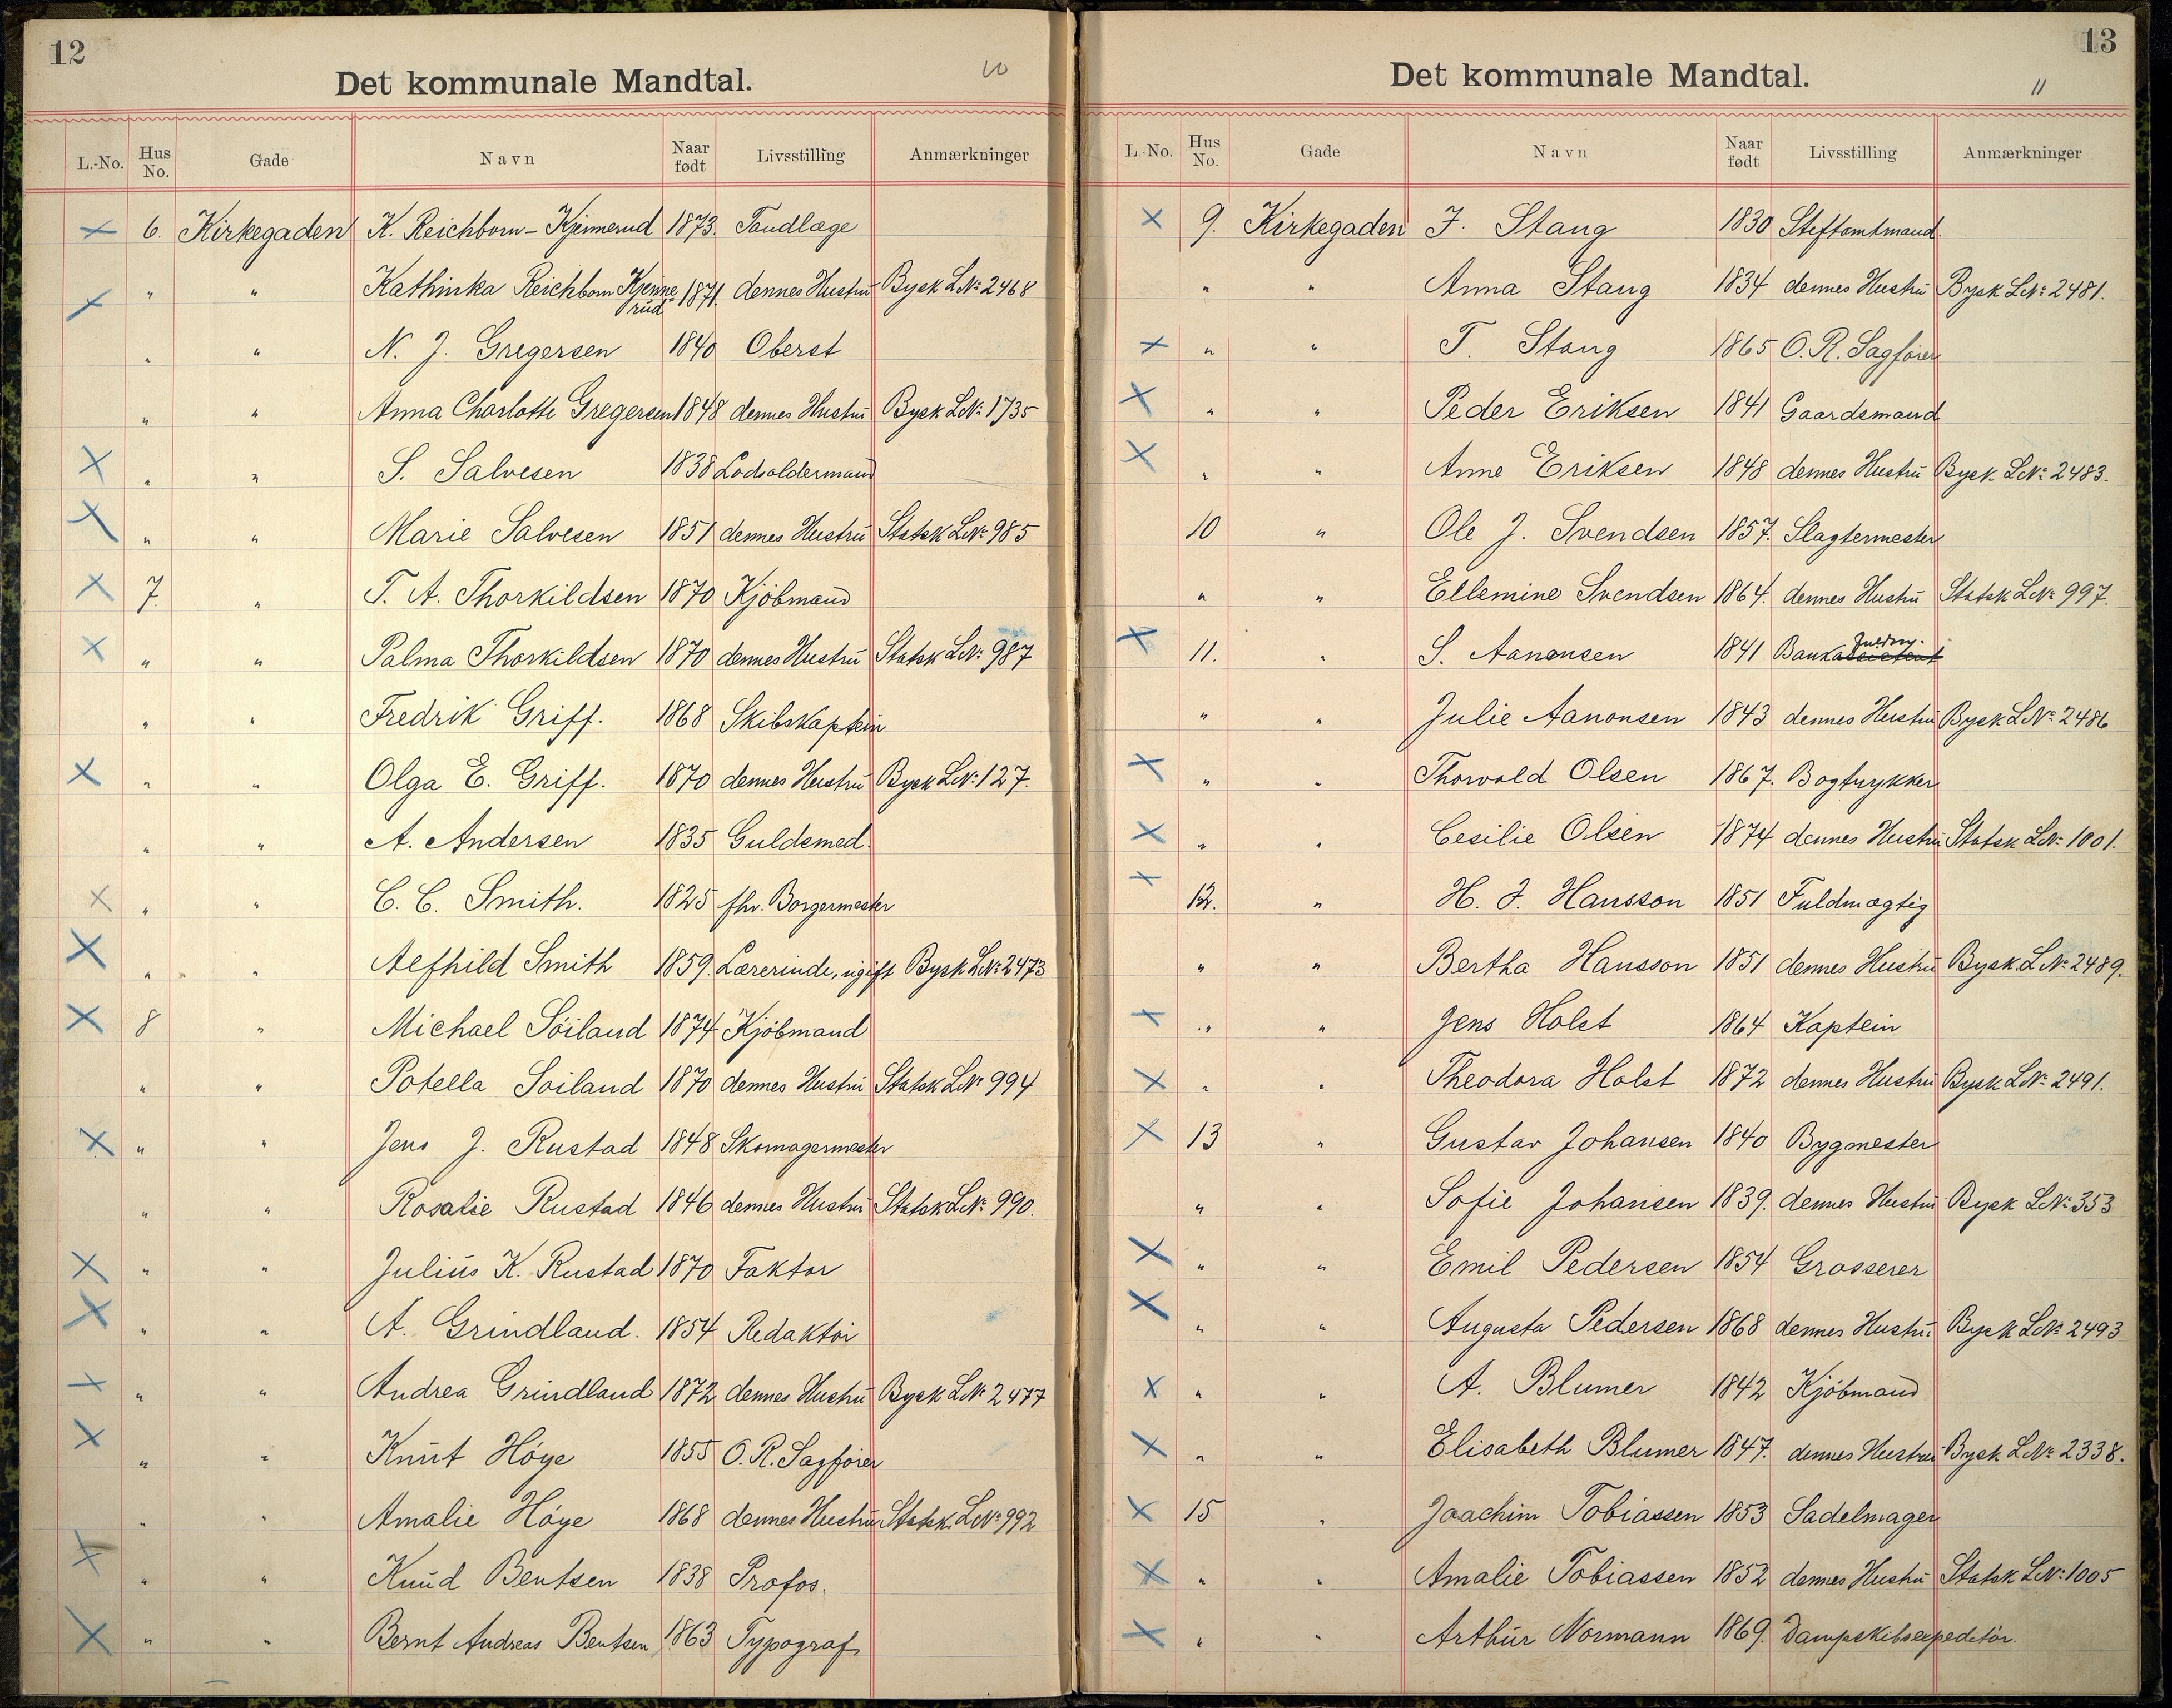 12
10
Det kommunale Mandtal.
L.-No. Hus No. Gade Navn Naar født Livsstilling Anmærkninger
6. Kirkegaden K. Reichborn-Kjennerud 1873. Tandlæge
" " Kathinka Reichborn Kjennerud 1871. dennes Hustru Bysk L№ 2468
" " N. J. Gregersen 1840 Oberst
" " Anna Charlotte Gregersen 1848 dennes Hustru Bysk L№ 1735
" " S. Salvesen 1838 Lodsoldermand
" " Marie Salvesen 1851 dennes Hustru Statsk L№ 985
7. " T. A. Thorkildsen 1870 Kjöbmand
" " Palma Thorkildsen 1870 dennes Hustru Statsk L№ 987
" " Fredrik Griff. 1868 Skibskaptein
" " Olga E. Griff. 1870 dennes Hustru Bysk L№ 127.
" " A. Andersen 1835 Guldsmed.
" " C. C. Smith. 1825 fhv. Borgermester
" " Aefhild Smith 1859. Lærerinde, ugift Bysk L№ 2473
8 " Michael Söiland 1874 Kjöbmand
" " Potella Soiland 1870 dennes Hustru Statsk L№ 994
" " Jens J. Rustad 1848 Skomagermester
" " Rosalie Rustad 1846 dennes Hustru Statsk L№ 990.
" " Julius K. Rustad 1870 Faktor
" " A. Grindland. 1854 Redaktör
" " Andrea Grindland 1872 dennes Hustru Bysk L№ 2477
" " Knut Höye 1855 O.R. Sagförer
" " Amalie Höye 1868 dennes Hustru Statsk. L№ 992
" " Knud Bentsen 1838 Profos.
" " Bernt Andreas Bentsen 1863 Typograf
13
11
Det kommunale Mandtal.
L.-No. Hus No. Gade Navn Naar født Livsstilling Anmærkninger
9. Kirkegaden F. Stang 1830 Stiftamtmand
" " Anna Stang 1834 dennes Hustru Bysk L№ 2481.
" " T. Stang 1865 O. R. Sagförer
" " Peder Eriksen 1841 Gaardsmand
" " Anne Eriksen 1848 dennes Hustru Bysk L№ 2483.
10 " Ole J. Svendsen 1857. Slagtermester
" " Ellemine Svendsen 1864. dennes Hustru Statsk L№ 997.
11. " S. Aanonsen 1841 Bankassistent Fuldm.
" " Julie Aanonsen 1843 dennes Hustru Bysk L№ 2486
" " Thorvald Olsen 1867. Bogtrykker
" " Cesilie Olsen 1874 dennes Hustru Statsk L№ 1001.
12. " H. J. Hansson 1851 Fuldmægtig
" " Bertha Hansson 1851 dennes Hustru Bysk. L№ 2489.
" " Jens Holst 1864 Kaptein
" " Theodora Holst 1872 dennes Hustru Bysk L№ 2491.
13 " Gustav Johansen 1840 Bygmester
" " Sofie Johansen 1839. dennes Hustru Bysk L№ 353
" " Emil Pedersen 1854 Grosserer
" " Augusta Pedersen 1868 dennes Hustru Bysk L№ 2493
" " A. Blumer 1842 Kjöbmand
" " Elisabeth Blumer 1847. dennes Hustru Bysk L№ 2338.
15 " Joachim Tobiassen 1853 Sadelmager
" " Amalie Tobiassen 1852 dennes Hustru Statsk L№ 1005
" " Arthur Normann 1869. Dampskibsexpeditör.